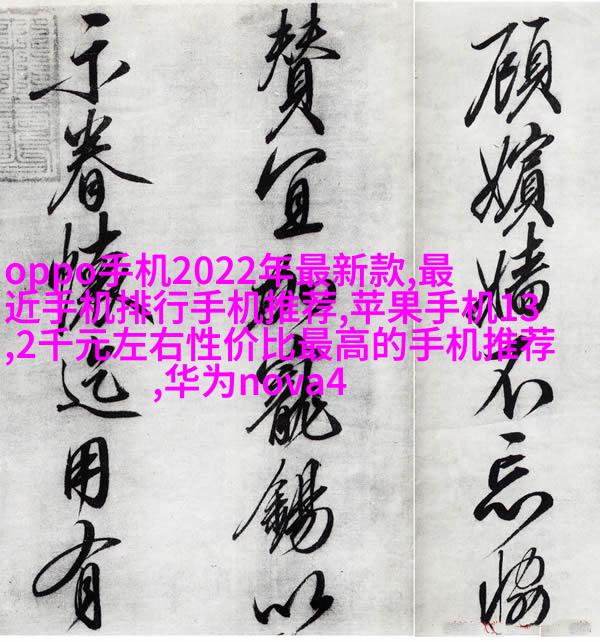 oppo手机2022年最新款,最
近手机排行手机推荐,苹果手机13
,2千元左右性价比最高的手机推荐
,华为nova4
顧嬪嬙不忘恊
贊宜寵錫以
示眷迄用有